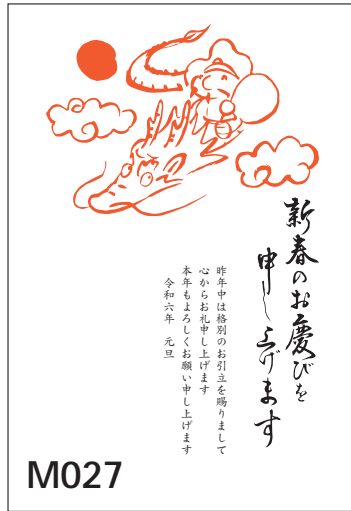 新春のお慶びを
申し上げます
昨年中は格別のお引立を賜りまして
心からお礼申し上げます
本年もよろしくお願い申し上げます
令和六年 元旦
M027